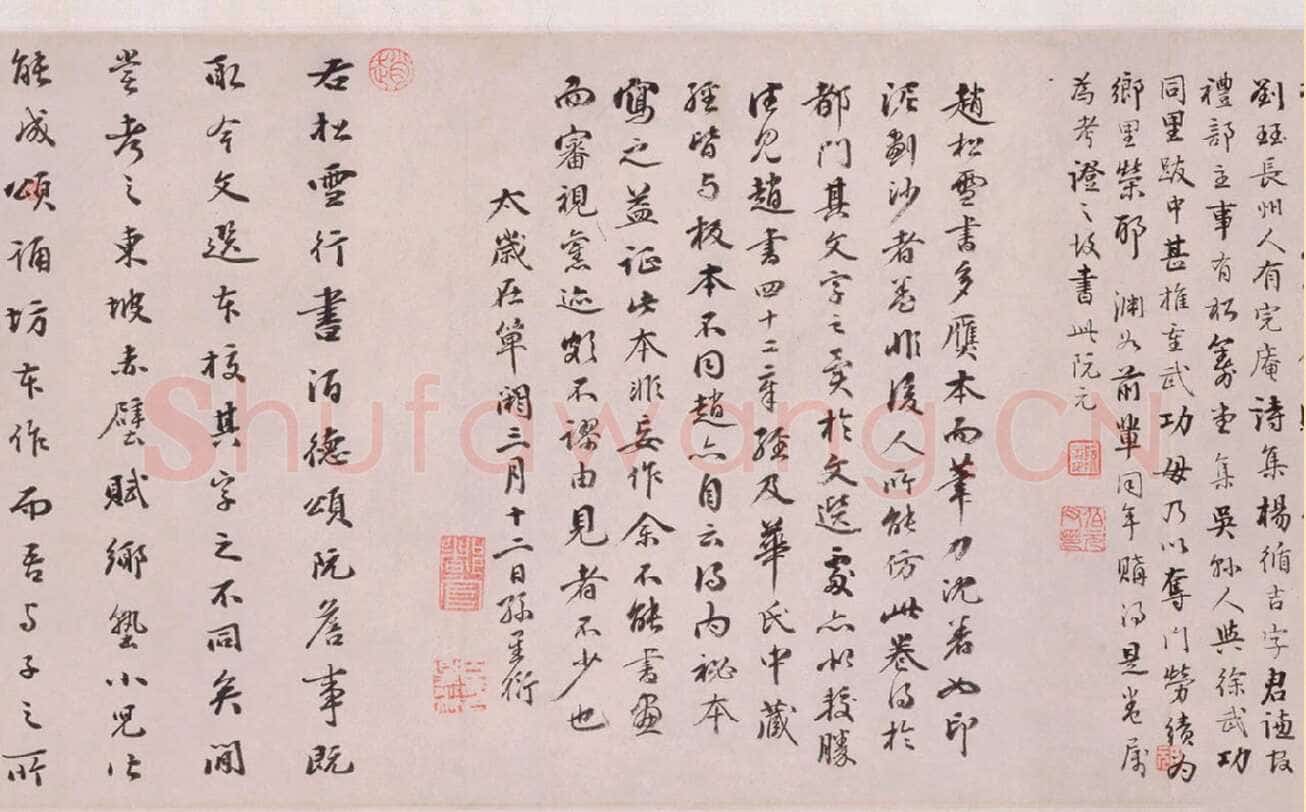 劉珏長洲人有完庵詩集楊循吉字君謙官
禮部主事有松籌堂集吳縣人與徐武功
同里跋中甚推重武功毋乃以奪門勞績為
鄉里榮耶淵如前輩同年購得是卷屬
為考證之故書此阮元
趙松雪書多贗本而筆力沈著如印
泥劃沙者蓋非後人所能仿此卷得於
都門其文字之異於文選處亦以校勝
往見趙書四十二章經及華氏中藏
經皆與板本不同趙亦自云得內祕本
寫之益證此本非妄作余不能書畫
而審視舊迹頗不謬由見者不少也
太歲在單閼三月十二日孫星衍
右松雪行書酒德頌阮詹事既
取今文選本校其字之不同矣間
嘗考之東坡赤壁賦鄉塾小兒皆
能成頌誦坊本作而吾與子之所
Shufawang.CN